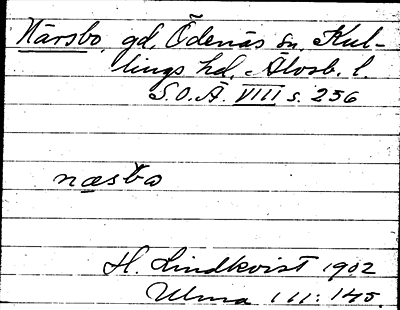 Närsbo, gd, Ödenäs sn, Kul-
lings hd. Älvsb. l.
S.O.Ä. VIII s. 256
næsba
H. Lindkvist 1902
Ulma 111:145.